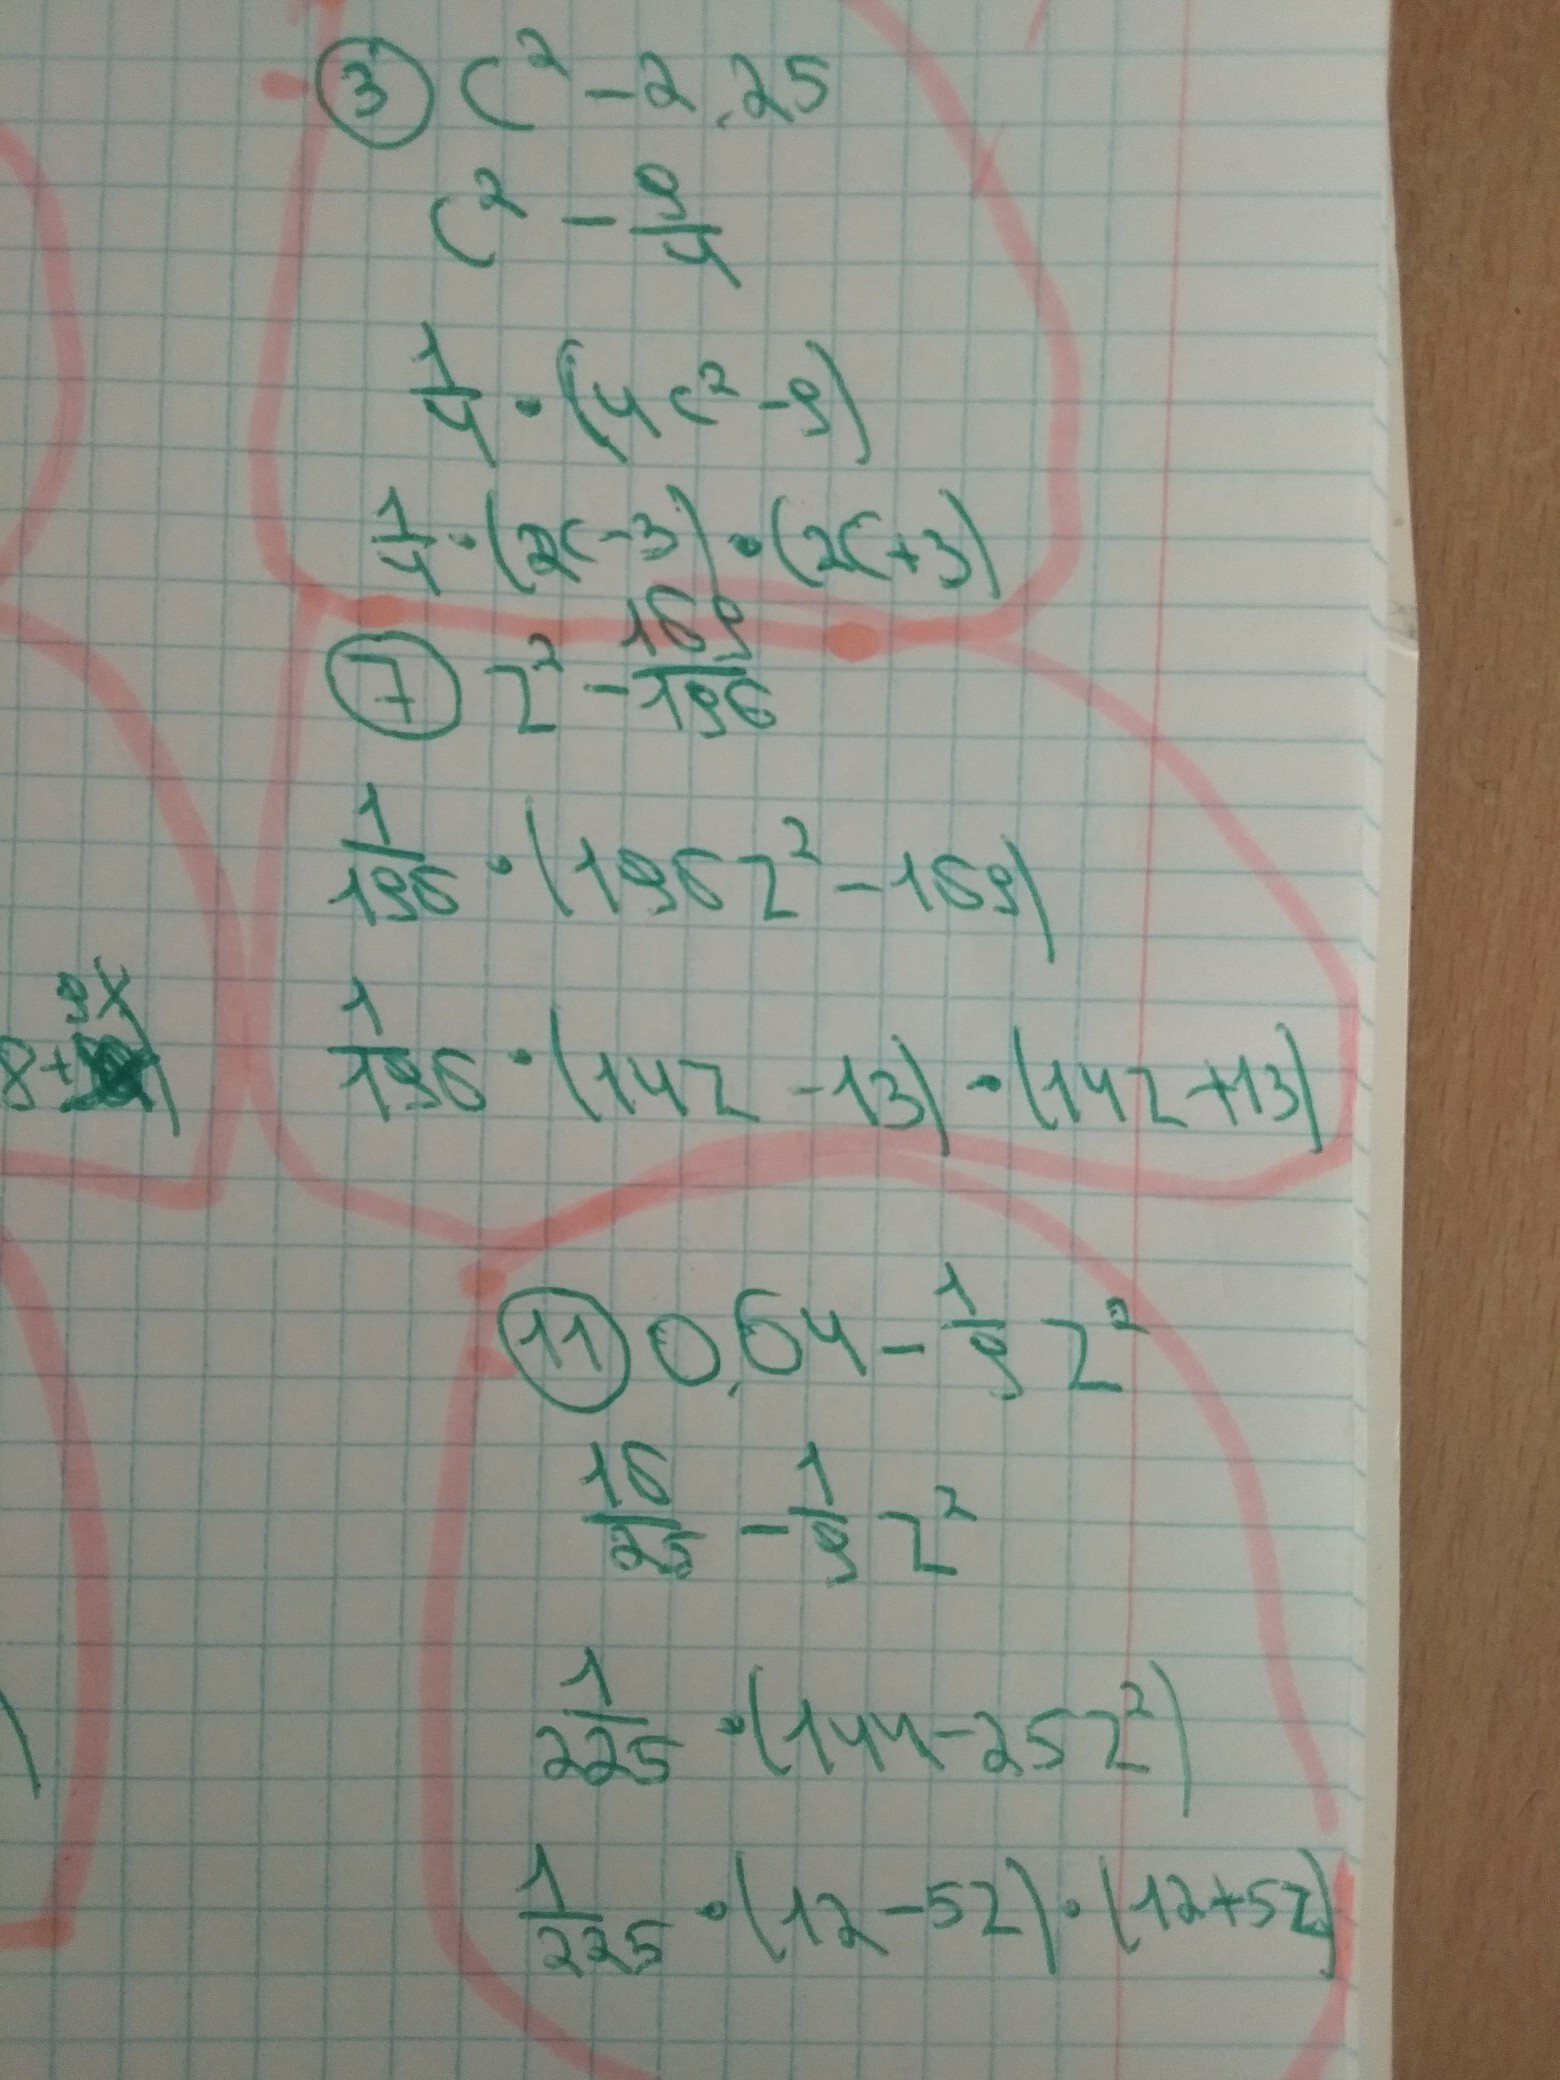 ③ c² - 2,25
c² - 9/4
1/4 · (4c² - 9)
1/4 · (2c - 3) · (2c + 3)
⑦ z² - 169/196
1/196 · (196z² - 169)
9x
8+
1/196 · (14z - 13) · (14z + 13)
⑪ 0,64 - 1/9 z²
16/25 - 1/9 z²
1/225 · (144 - 25z²)
1/225 · (12 - 5z) · (12 + 5z)